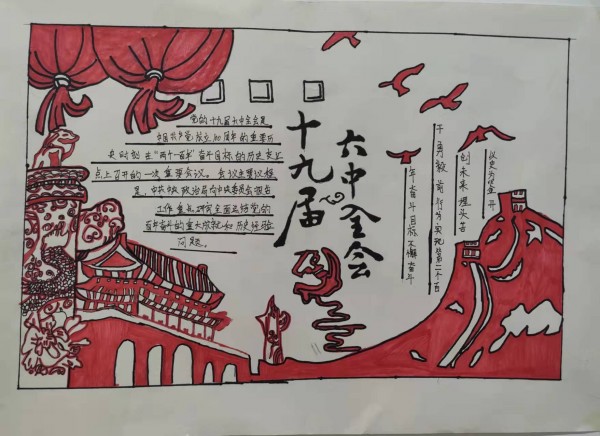 党的十九届六中全会是
中国共产党成立100周年的重要历
史时刻在“两个一百年”奋斗目标的历史交汇
点上召开的一次重要会议。会议主要议程
是，中共中央政治局向中央委员会报告
工作重点研究全面总结党的
百年奋斗的重大成就和历史经验
问题。
十九届
六中全会
以史为鉴开
创未来埋头苦
干勇毅前行为实现第二个百
年奋斗目标不懈奋斗